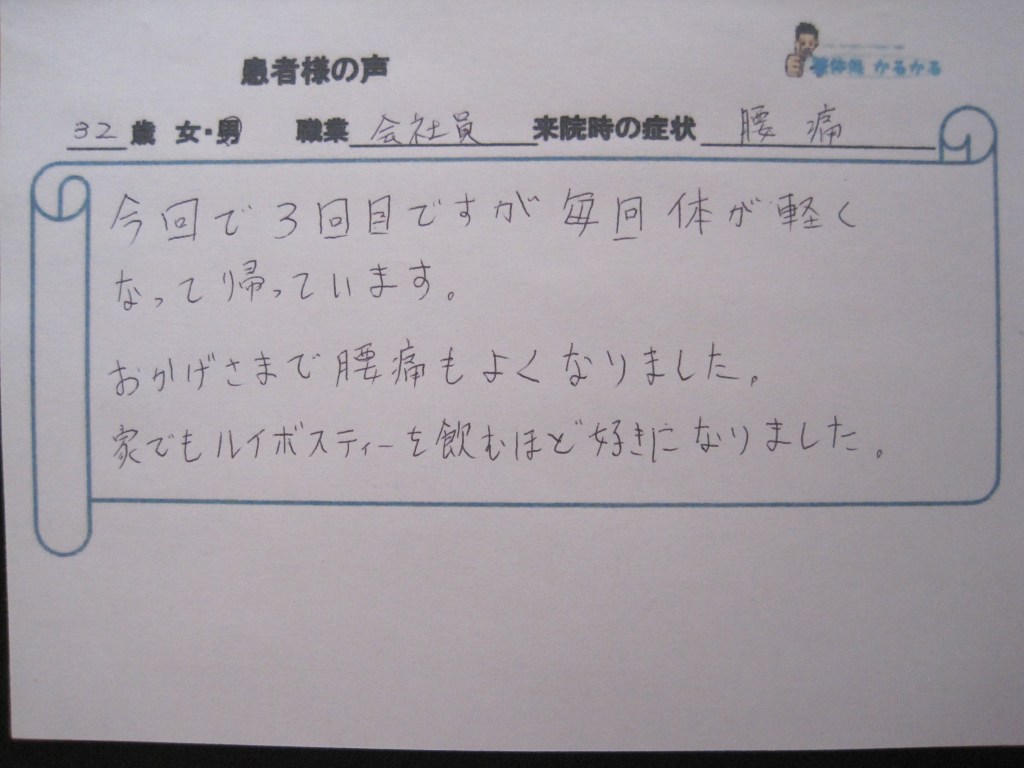 患者様の声
整体院 かるかる
32 歳 女・男 職業 会社員 来院時の症状 腰痛
今回で3回目ですが毎回体が軽く
なって帰っています。
おかげさまで腰痛もよくなりました。
家でもルイボスティーを飲むほど好きになりました。